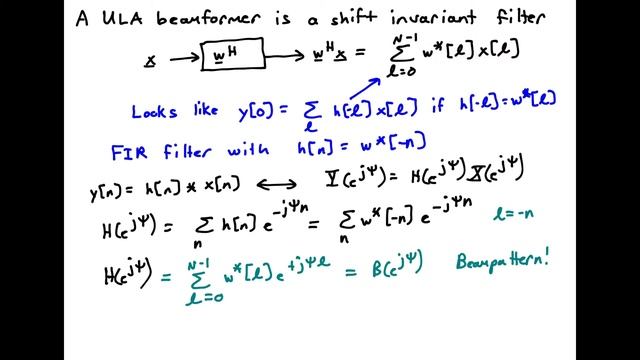 A ULA beamformer is a shift invariant filter
x → w^H → w^H x = ∑_{l=0}^{N-1} w*[l] x[l]
Looks like y[0] = ∑_l h[-l] x[l] if h[-l] = w*[l]
FIR filter with h[n] = w*[-n]
y[n] = h[n] * x[n] ⟷ Y(e^{jΨ}) = H(e^{jΨ}) X(e^{jΨ})
H(e^{jΨ}) = ∑_n h[n] e^{-jΨn} = ∑_n w*[-n] e^{-jΨn} l = -n
H(e^{jΨ}) = ∑_{l=0}^{N-1} w*[l] e^{+jΨl} = B(e^{jΨ}) Beampattern!